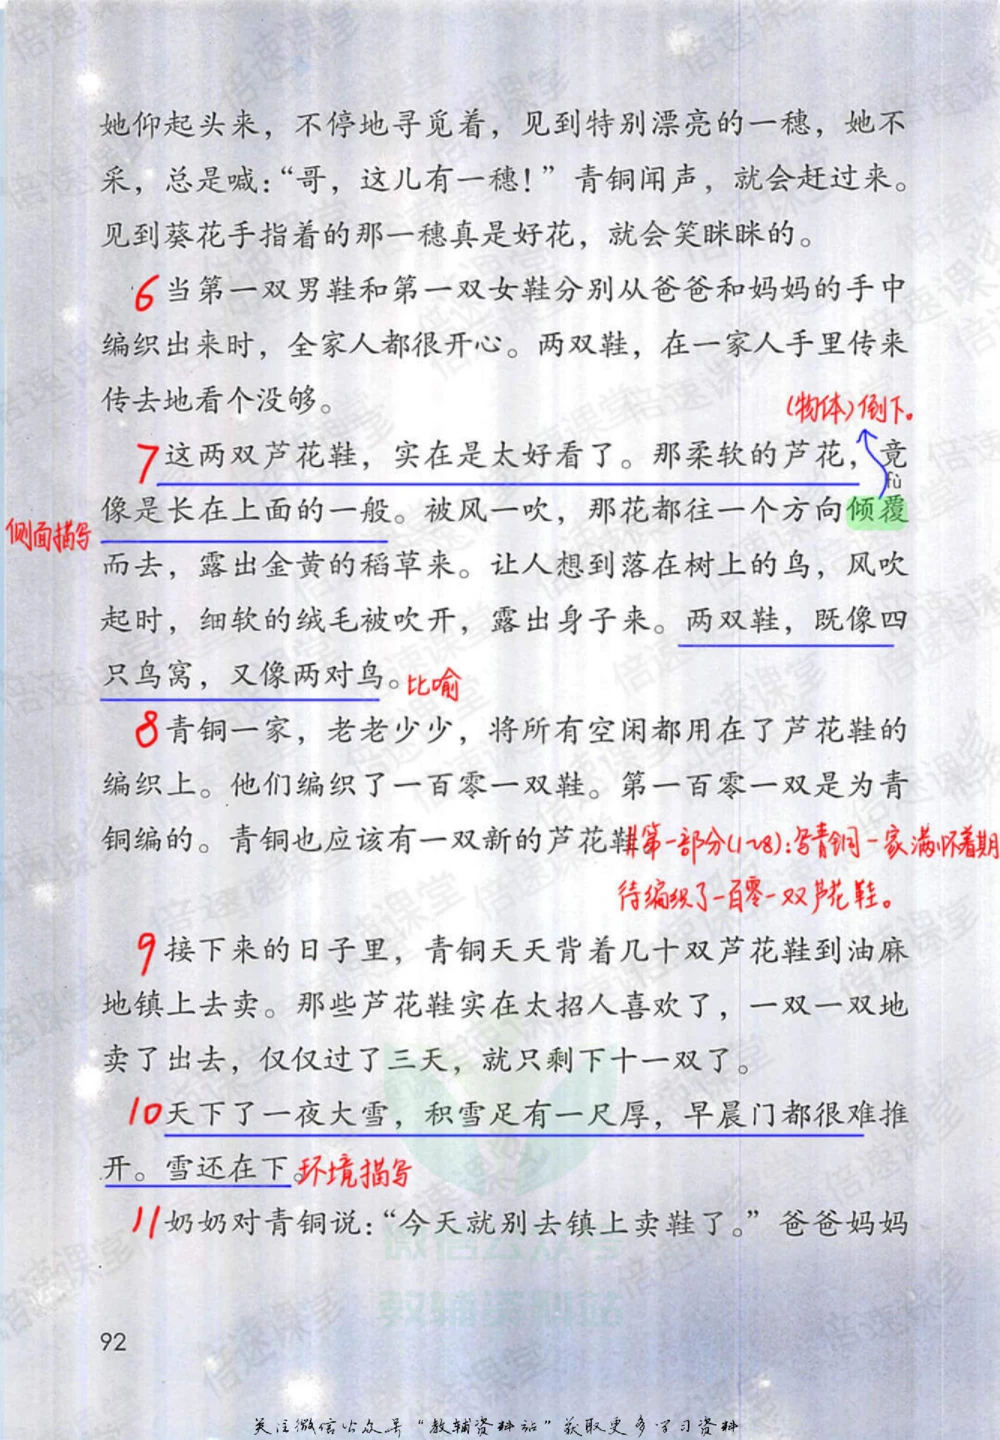 她仰起头来，不停地寻觅着，见到特别漂亮的一穗，她不
采，总是喊：“哥，这儿有一穗！”青铜闻声，就会赶过来。
见到葵花手指着的那一穗真是好花，就会笑眯眯的。
6当第一双男鞋和第一双女鞋分别从爸爸和妈妈的手中
编织出来时，全家人都很开心。两双鞋，在一家人手里传来
传去地看个没够。
(物体)倒下。
7这两双芦花鞋，实在是太好看了。那柔软的芦花，竟
fù
像是长在上面的一般。被风一吹，那花都往一个方向倾覆
侧面描写
而去，露出金黄的稻草来。让人想到落在树上的鸟，风吹
起时，细软的绒毛被吹开，露出身子来。两双鞋，既像四
只鸟窝，又像两对鸟。比喻
8青铜一家，老老少少，将所有空闲都用在了芦花鞋的
编织上。他们编织了一百零一双鞋。第一百零一双是为青
铜编的。青铜也应该有一双新的芦花鞋
//第一部分(1~8)：写青铜一家满怀着期
待编织了一百零一双芦花鞋。
9接下来的日子里，青铜天天背着几十双芦花鞋到油麻
地镇上去卖。那些芦花鞋实在太招人喜欢了，一双一双地
卖了出去，仅仅过了三天，就只剩下十一双了。
10天下了一夜大雪，积雪足有一尺厚，早晨门都很难推
开。雪还在下。环境描写
11奶奶对青铜说：“今天就别去镇上卖鞋了。”爸爸妈妈
微信公众号
教辅资料站
92
关注微信公众号“教辅资料站”获取更多学习资料
倍速课堂